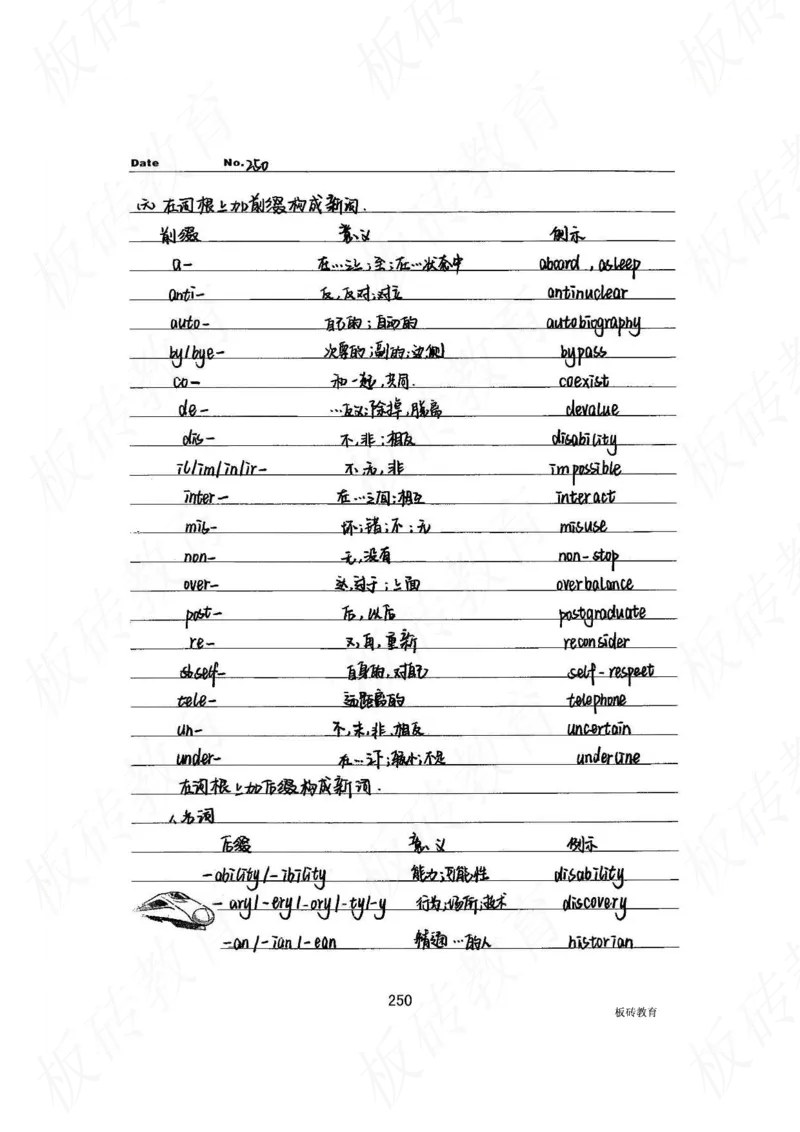 Date No. 250
(六) 在词根上加前缀构成新词.
前缀 意义 例示
a- 在…之上;至;在…状态中 aboard , asleep
anti- 反,反对;对立 antinuclear
auto- 自己的;自动的 autobiography
by/bye- 次要的;副的;边侧 bypass
co- 和一起,共同. coexist
de- …反义;除掉,脱离 devalue
dis- 不,非;相反 disability
il/im/in/ir- 不,无,非 impossible
inter- 在…之间;相互 interact
mis- 坏;错;不;无 misuse
non- 无,没有 non-stop
over- 过于;上面 overbalance
post- 后,以后 postgraduate
re- 又,再,重新 reconsider
self- 自身的,对自己 self-respect
tele- 远距离的 telephone
un- 不,未,非,相反 uncertain
under- 在…之下;较小;不足 underline
在词根上加后缀构成新词.
1、名词
后缀 意义 例示
-ability/-ibility 能力;可能性 disability
-ary/-ery/-ory/-ty/-y 行为;场所;技术 discovery
-an/-ian/-ean 精通…的人 historian
250
板砖教育